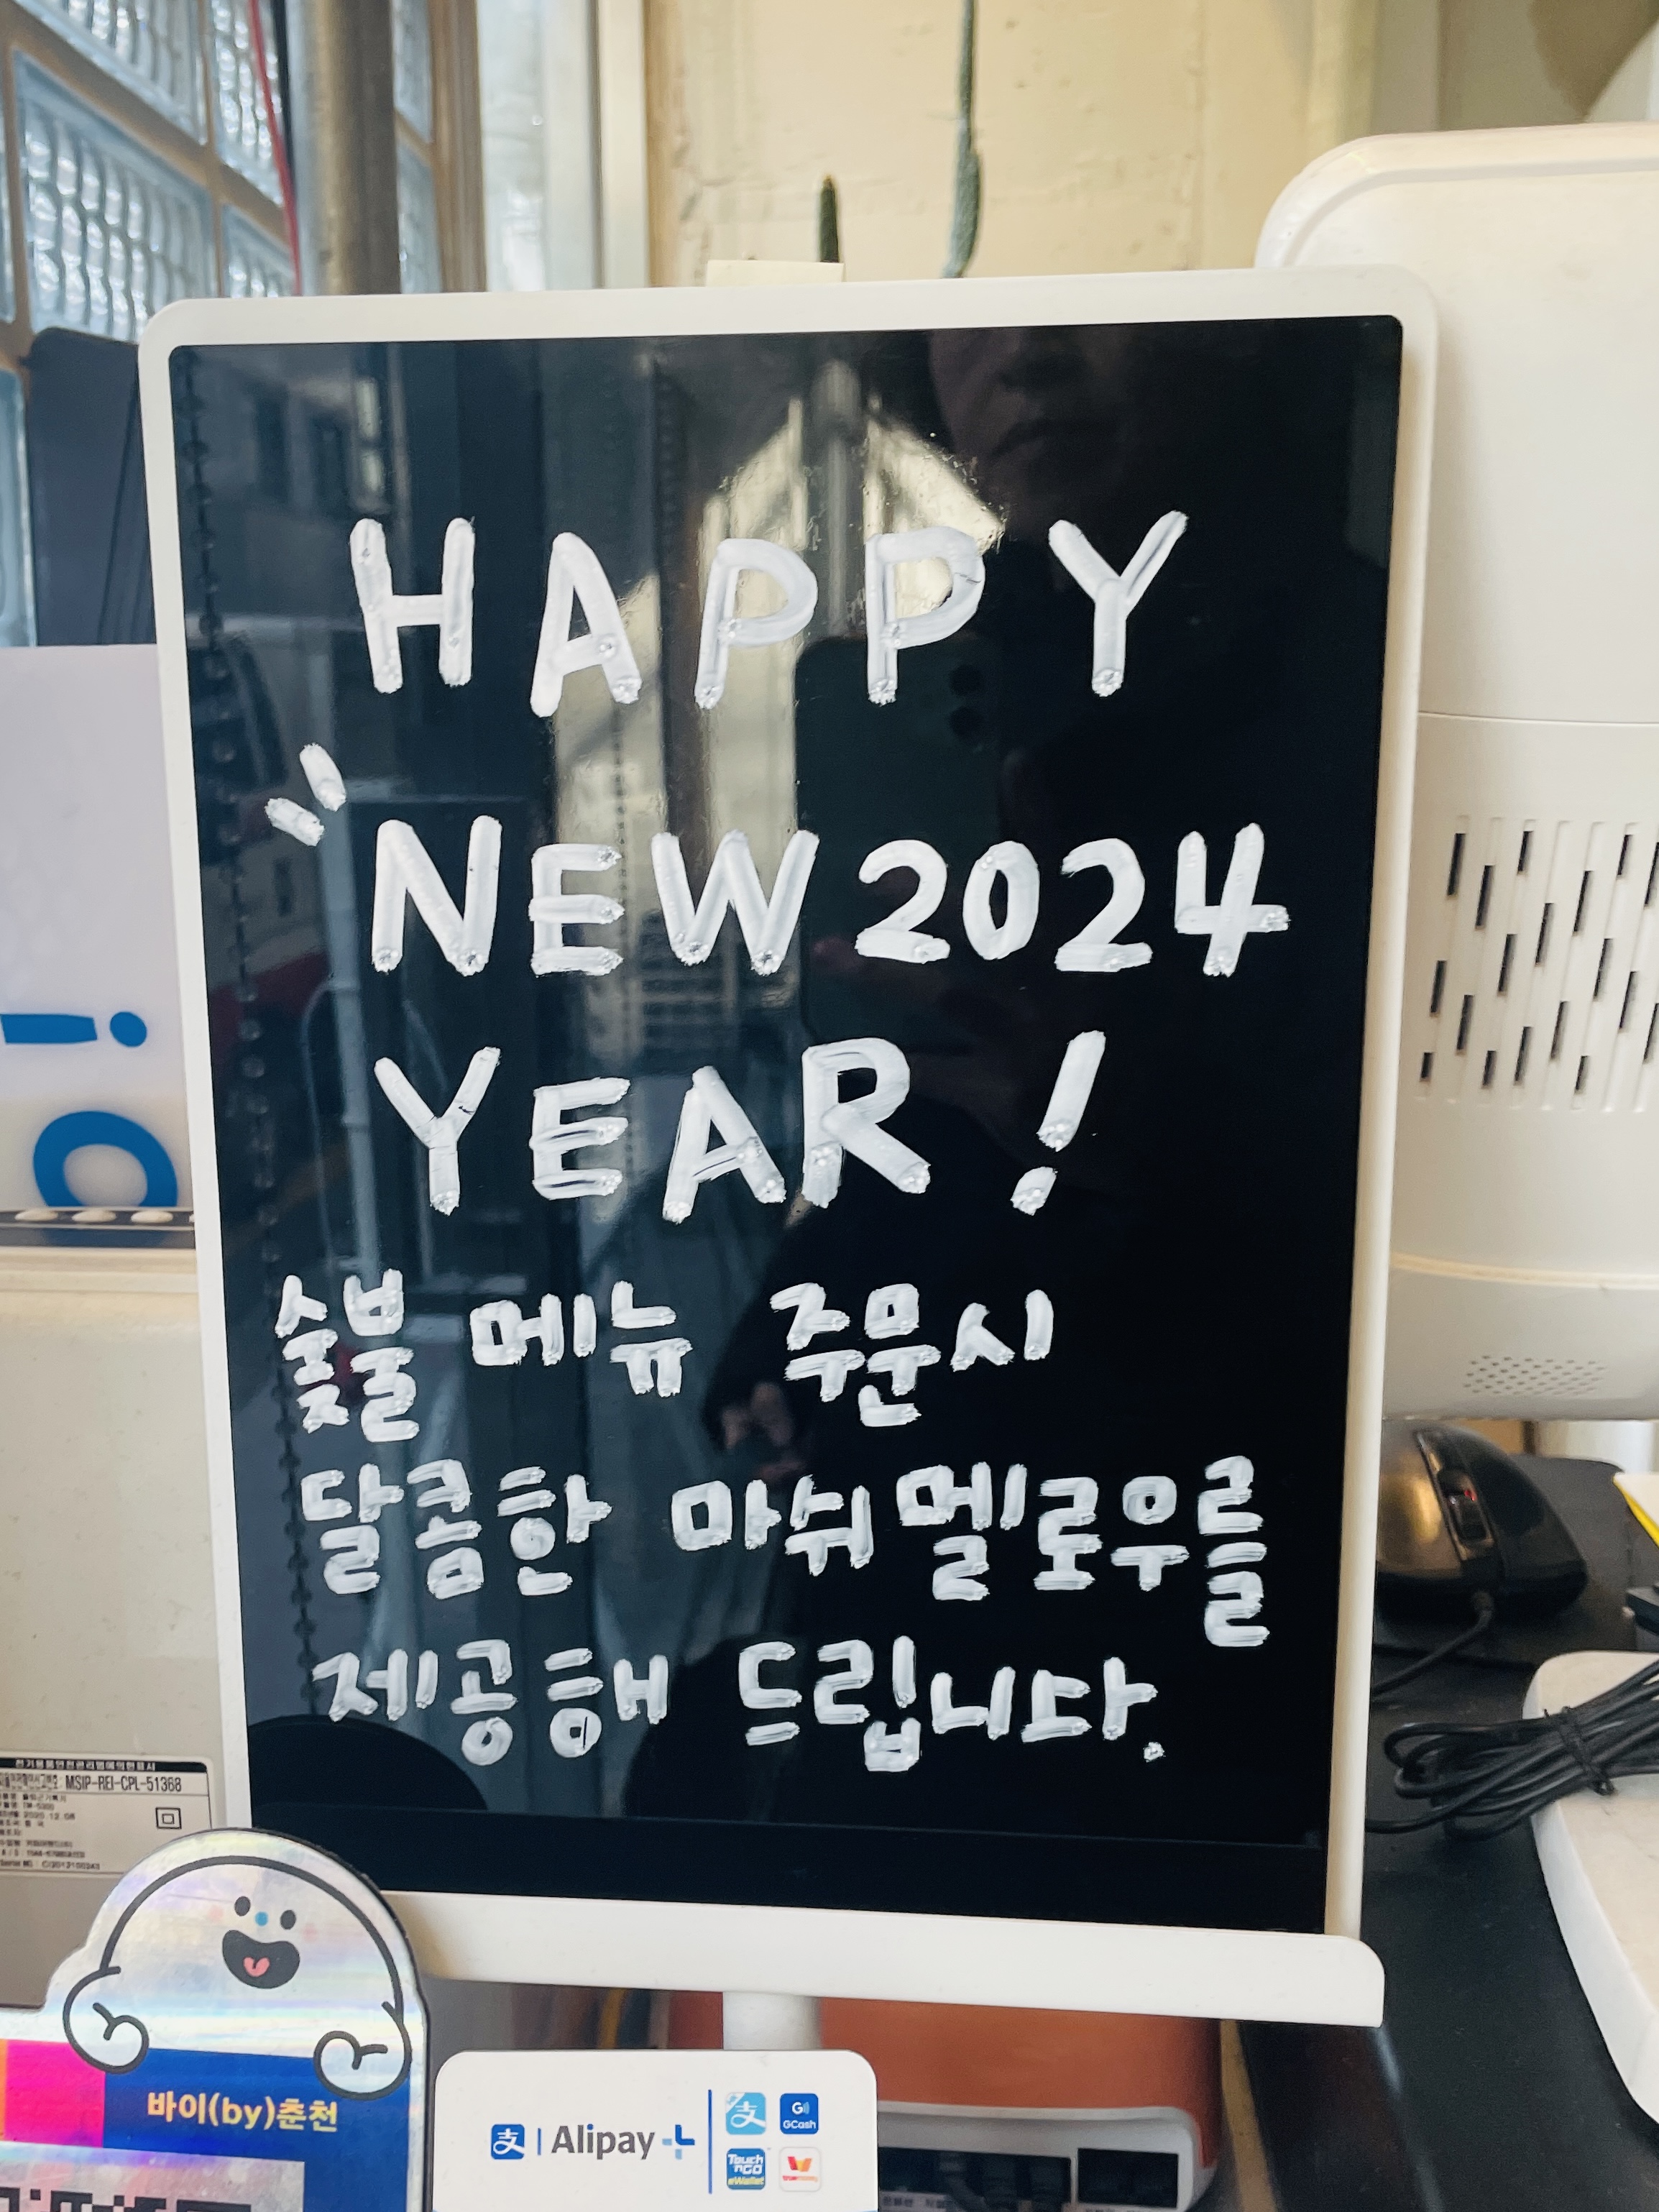 HAPPY
NEW 2024
YEAR!
숯불 메뉴 주문시
달콤한 마쉬멜로우를
제공해 드립니다.
MSIP-REI-CPL-51368
바이(by)춘천
支 | Alipay+
支
GCash
Touch
'nGO
eWallet